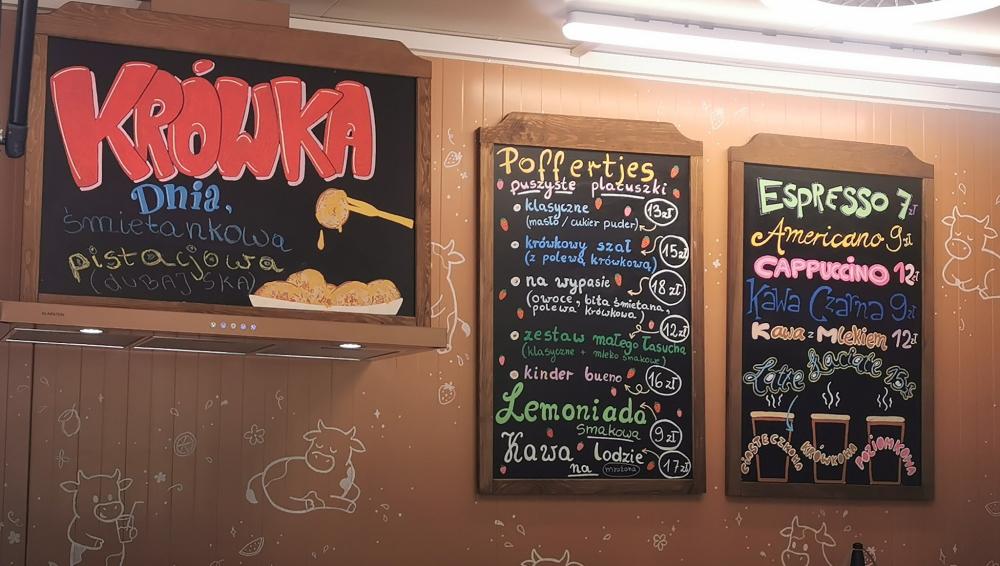 KRÓWKA
Dnia,
śmietankowa
pistacjowa
(DUBAJSKA)
KLARSTEIN
Poffertjes
puszyste placuszki
klasyczne 13zł
(masło / cukier puder)
krówkowy szał 15zł
(z polewą krówkową)
na wypasie 18zł
(owoce, bita śmietana,
polewa krówkowa)
zestaw małego łasucha 12zł
(klasyczne + mleko smakowe)
kinder bueno 16zł
Lemoniada
smakowa 9zł
Kawa lodzie
na mrożona 17zł
ESPRESSO 7zł
Americano 9zł
CAPPUCCINO 12zł
Kawa Czarna 9zł
Kawa z Mlekiem 12zł
Latte Łaciate 15zł
CIASTECZKOWA
KRÓWKOWA
POZIOMKOWA